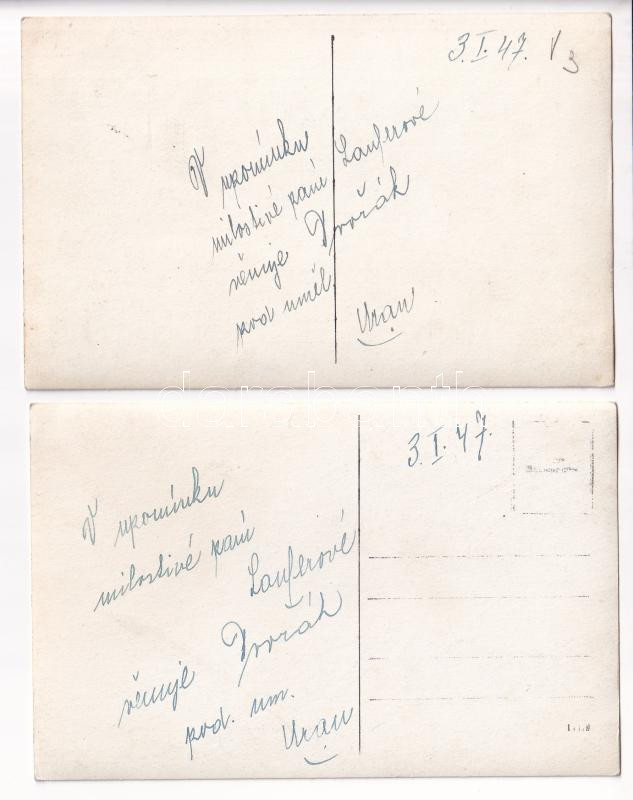 3. I. 47.
V upomínku
milostivé paní Lauferové
věnuje Dvořák
pod uměl.
Uran
3. I. 47.
V upomínku
milostivé paní
Lauferové
věnuje Dvořák
pod. um.
Uran